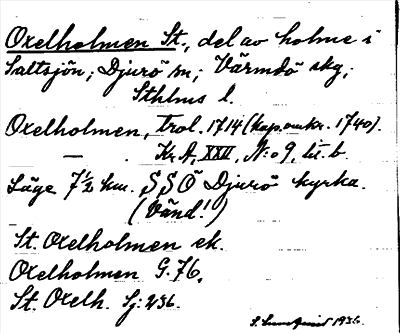 Oxelholmen St., del av holme i
Saltsjön; Djurö sn; Värmdö skg;
Sthlms l.
Oxelholmen, trol. 1714 (kop. omkr. 1740).
— . Kr. A, XXII, N:o 9, lit. b.
Läge 7 ½ km. SSÖ Djurö kyrka.
(Vänd!)
St. Oxelholmen ek.
Oxelholmen G. 76.
St. Oxelh. Sj: 236.
1936